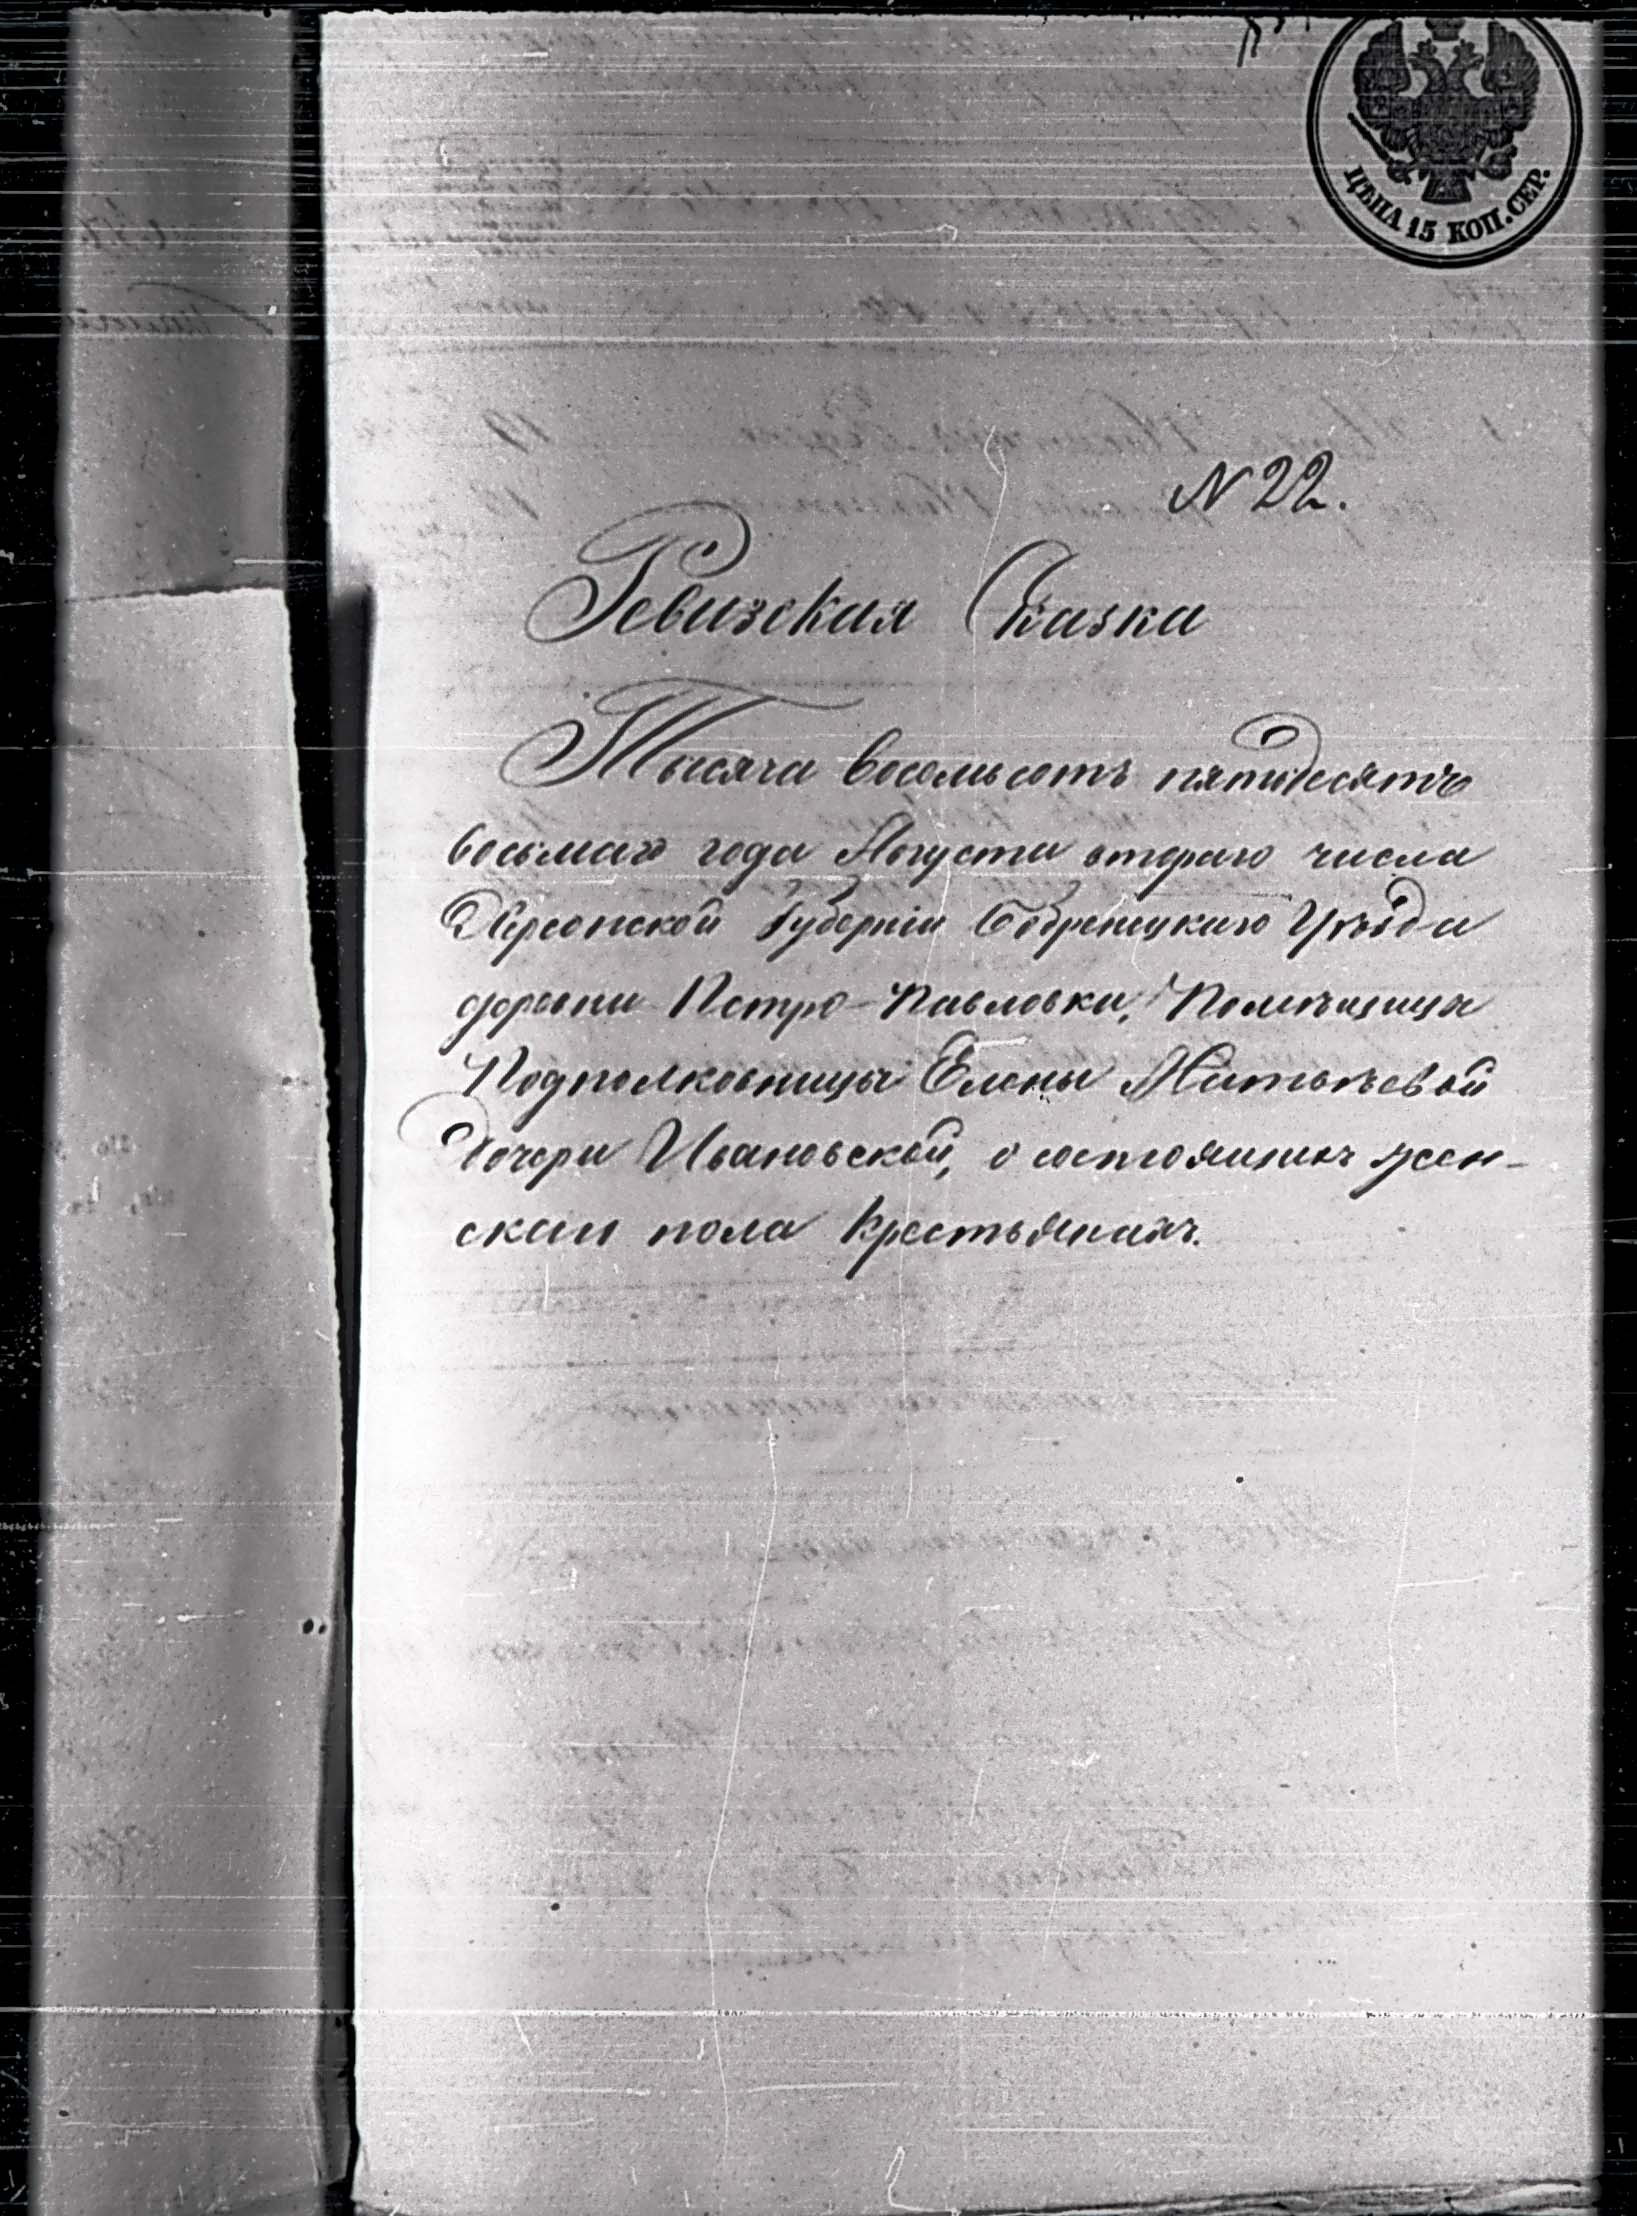 ЦѢНА 15 КОП. СЕР.
N 22.
Ревизская Сказка
Тысяча восемьсотъ пятьдесятъ
восьмаго года Августа втораго числа
Херсонской Губерніи Бобринецкаго Уѣзда
деревни Петро-Павловки, Помѣщицы
Подполковницы Елены Матвѣевой
Дочери Ивановской, о состоящихъ жен-
скаго пола крестьянахъ.